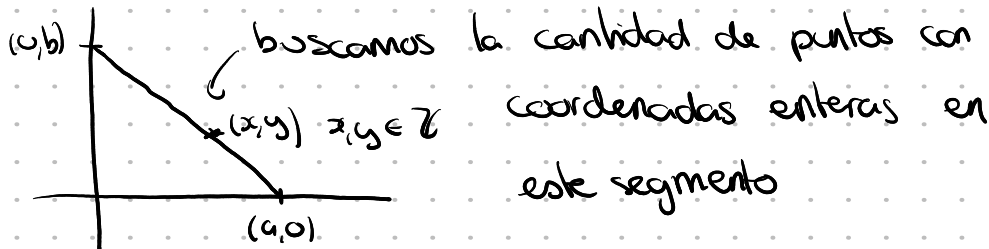 (0,b) buscamos la cantidad de puntos con
(x,y) x,y ∈ ℤ coordenadas enteras en
este segmento
(a,0)